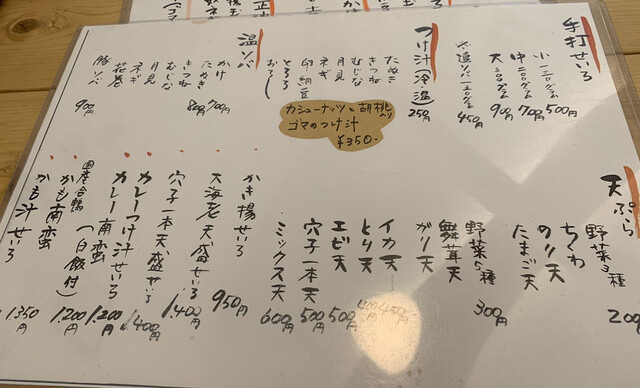 手打せいろ
小 一二〇グム 500円
中 二〇〇グム 700円
大 三〇〇グム 900円
450円
つけ汁(冷・温) 250円
たぬき
きつね
むじな
月見
ネギ
納豆
とろろ
おろし
カシューナッツと胡桃入り
ゴマのつけ汁
¥350-
温ソバ
かけ 700円
たぬき 800円
きつね
むじな
月見
ネギ
花巻
豚ソバ 900円
天ぷら
野菜3種 200円
ちくわ
のり天
たまご天
野菜5種 300円
舞茸天
ガリ天
イカ天 450円
とり天
エビ天 500円
穴子一本天 500円
ミックス天 600円
かき揚せいろ 950円
大海老天盛せいろ 1,400円
穴子一本天盛せいろ 1,400円
カレーつけ汁せいろ
カレー南蛮 1,200円
国産合鴨
かも南蛮(白飯付) 1,200円
かも汁せいろ 1,350円